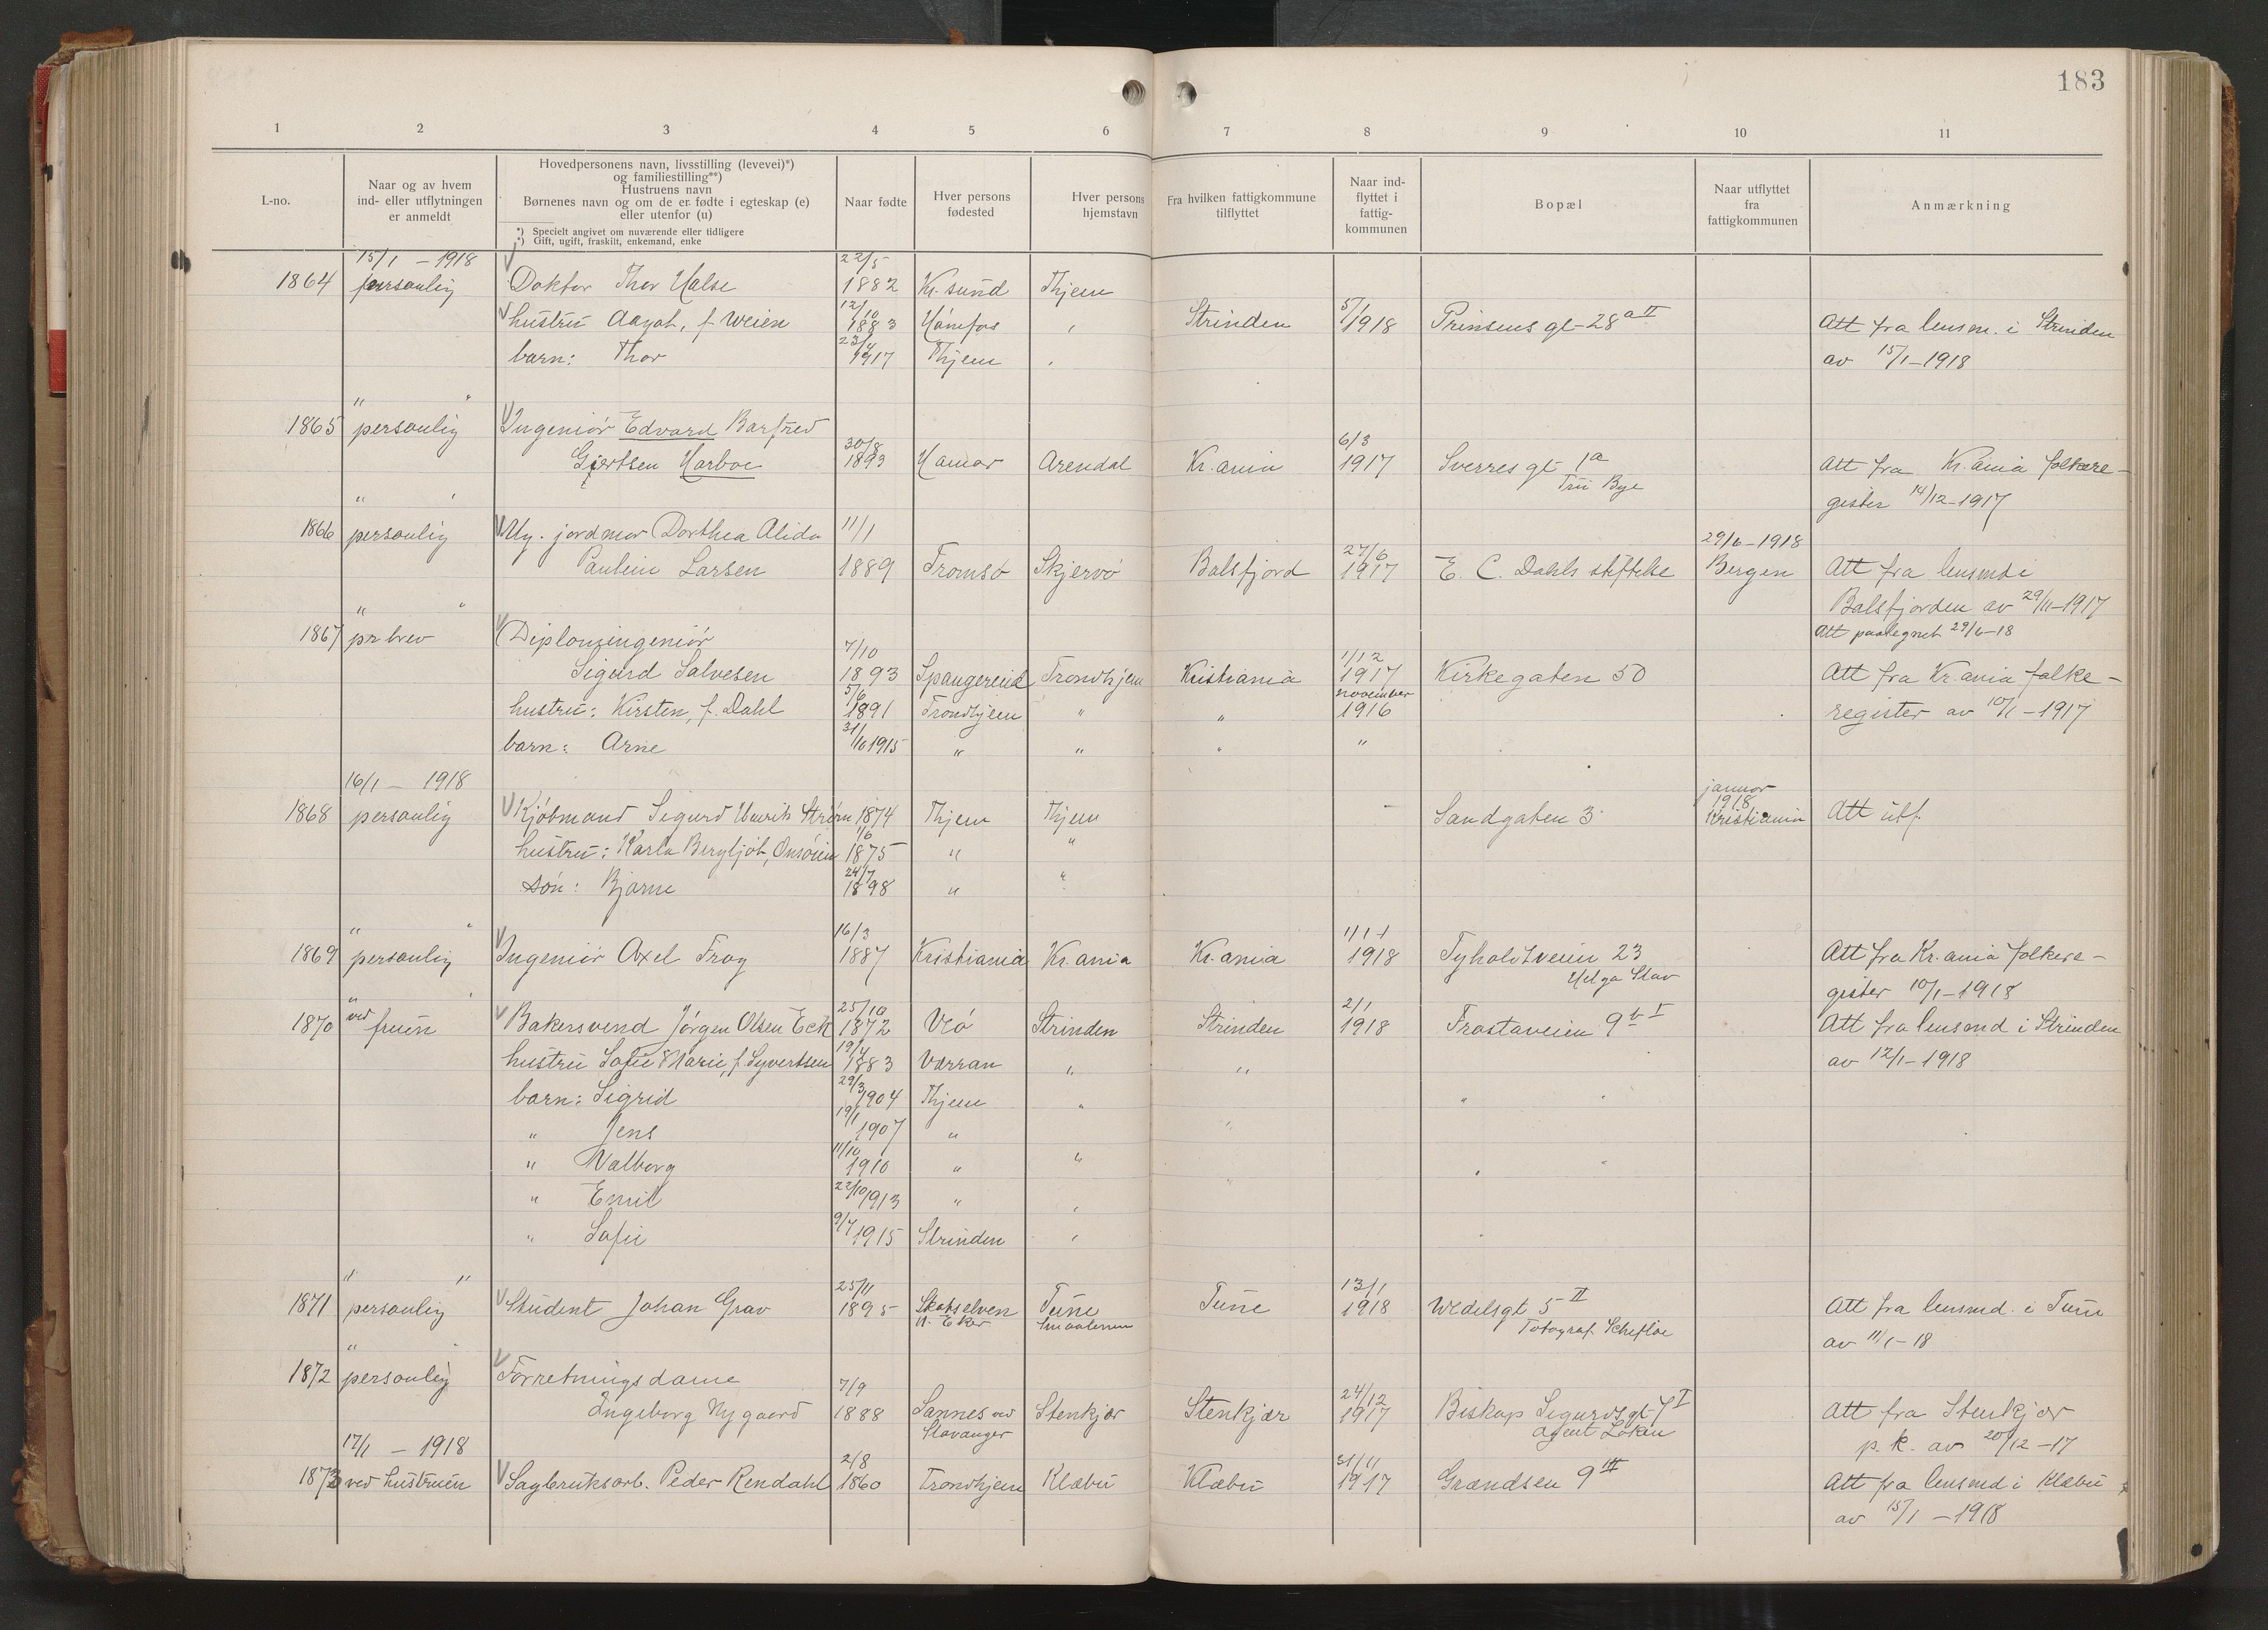 183
1 2 3 4 5 6 7 8 9 10 11
L-no.
Naar og av hvem
ind- eller utflytningen
er anmeldt
Hovedpersonens navn, livsstilling (levevei)*)
og familiestilling**)
Hustruens navn
Børnenes navn og om de er fødte i egteskap (e)
eller utenfor (u)
*) Specielt angivet om nuværende eller tidligere
*) Gift, ugift, fraskilt, enkemand, enke
Naar fødte
Hver persons
fødested
Hver persons
hjemstavn
Fra hvilken fattigkommune
tilflyttet
Naar ind-
flyttet i
fattig-
kommunen
Bopæl
Naar utflyttet
fra
fattigkommunen
Anmærkning
15/1 - 1918 22/5
1864 personlig Doktor Thor Halse 1882 Kr.sund Thjem
hustru Aagot, f. Weien 12/10 1883 Hønefos " Strinden 5/1 1918 Prinsens gt 28 a II Att fra lensm. i Strinden
barn: Thor 1917 Thjem " av 15/1-1918
" "
1865 personlig Ingeniør Edvard Barfred
Gjertsen Harboe 30/8 1893 Hamar Arendal Kr.ania 6/3 1917 Sverres gt 1a Att fra Kr.ania folkere-
" " Bye gister 14/12-1917
1866 personlig Ug. jordmor Dorthea Alida 11/1 29/6-1918
Pauline Larsen 1889 Tromsø Skjervø Balsfjord 27/6 1917 E. C. Dahls stiftelse Bergen Att fra lensmd i
" " Balsfjorden av 29/11-1917
1867 pr brev Diplomingeniør Att paategnet 29/6-18
Sigurd Salvesen 7/10 1893 Spangereid Trondhjem Kristiania 1/12 1917 Kirkegaten 50 Att fra Kr.ania folke-
hustru: Kirsten, f. Dahl 5/6 1891 Trondhjem " " november 1916 register av 10/1-1917
barn: Arne 1915 " " " "
16/1 - 1918 januar
1868 personlig Kjøbmand Sigurd Henrik Strøm 1874 Thjem Thjem Sandgaten 3 1918 Kristiania Att utf.
hustru: Karla Bergljot, 1/6 1875 " "
søn: Bjarne 24/7 1898 " "
" "
1869 personlig Ingeniør Axel Frog 16/3 1887 Kristiania Kr.ania Kr.ania 1/1 1918 Tyholtveien 23 Att fra Kr.ania folkere-
" " Helga Stav gister 10/1-1918
1870 ved fruen Bakersvend Jørgen Olsen Eck 25/10 1872 Strinden Strinden 2/1 1918 Frostaveien 9 b I Att fra lensmd i Strinden
hustru Sofie Marie, f. Syvertsen 19/4 1883 Værran " " av 12/1-1918
barn: Sigrid 29/3 1904 Thjem " " "
" Jens 19/1 1907 " "
" Valborg 11/10 1910 " " " "
" Emil 22/10 1913 " "
" Sofie 9/7 1915 Strinden " "
" "
1871 personlig Student Johan Grav 25/11 1895 Skotselven Tune Tune 13/1 1918 Wedelsgt 5 II Att fra lensmd. i Tune
Ø. Eker Smaalenene Fotograf Schefloe av 11/1-18
" "
1872 personlig Forretningsdame
Ingeborg Nygaard 7/9 1888 Sannes ved Stenkjær Stenkjær 24/12 1917 Biskop Sigurds gt 7 I Att fra Stenkjær
17/1 - 1918 Stavanger agent Løken p. k. av 20/12-17
1873 ved hustruen Sagbruksarb. Peder Rendahl 2/8 1860 Trondhjem Klæbu Klæbu 1917 Grændsen 9 III Att fra lensmd i Klæbu
av 15/1-1918